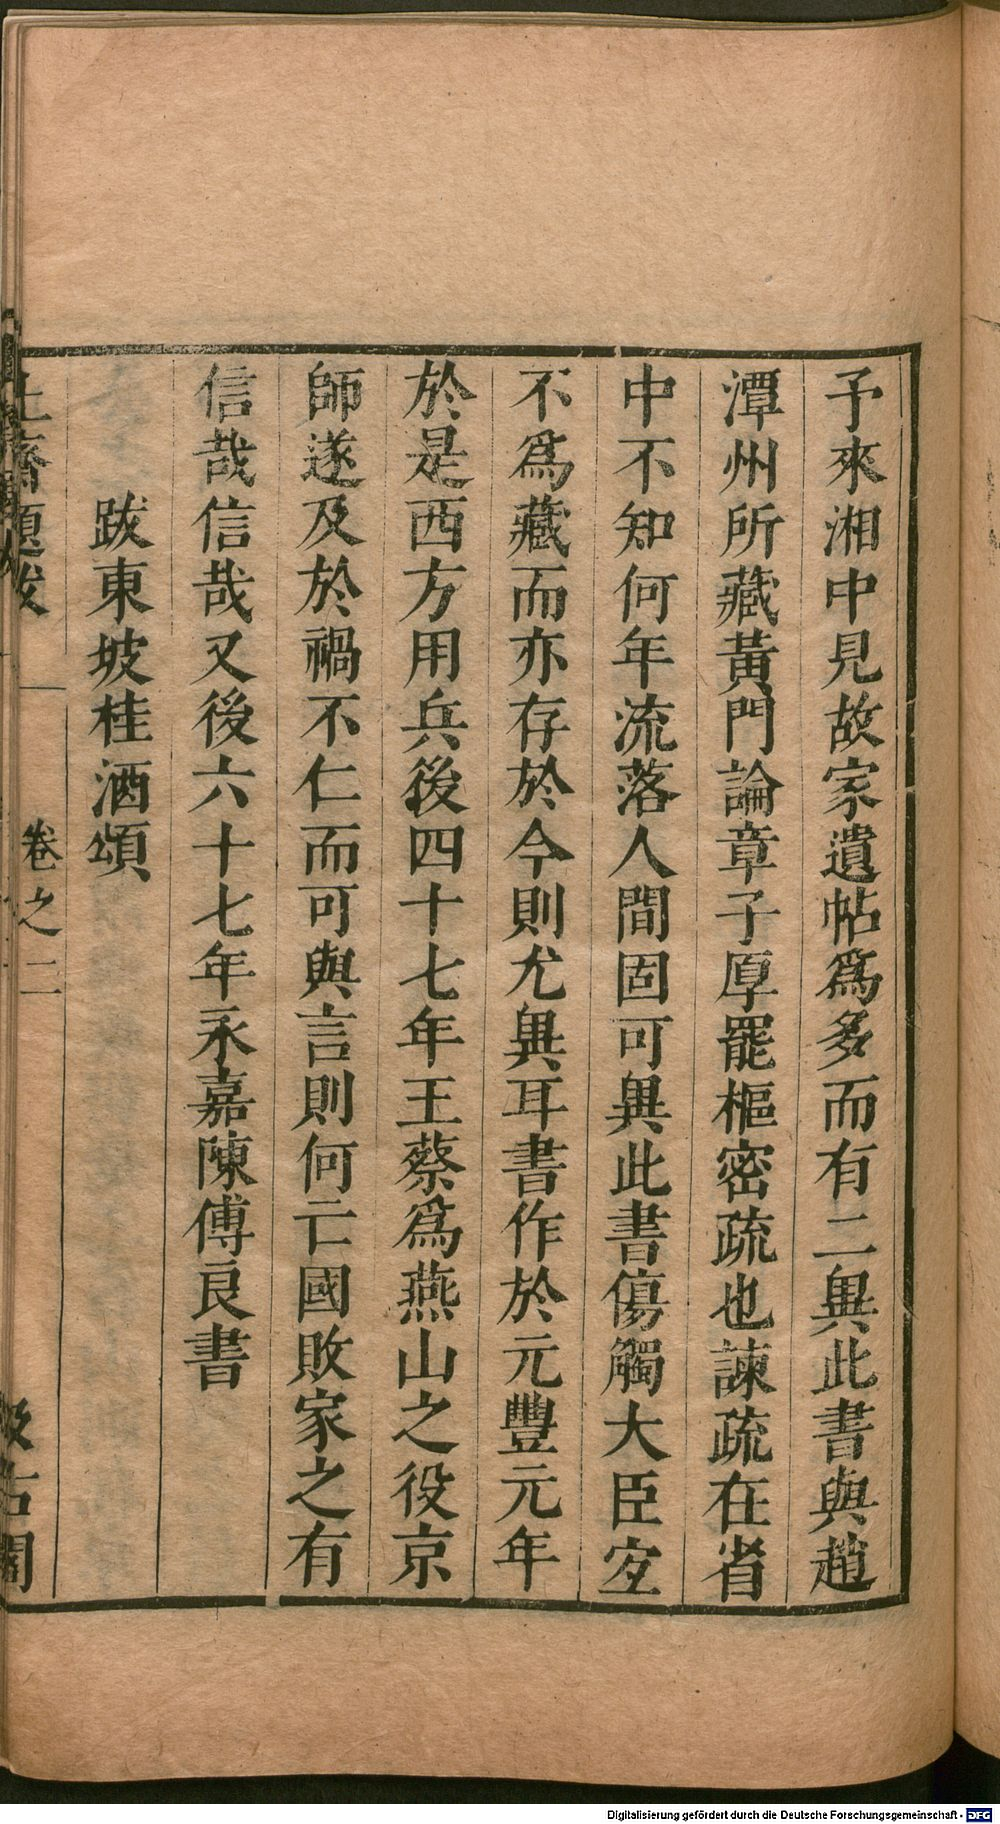 予來湘中見故家遺帖爲多而有二異此書與趙
潭州所藏黃門論章子厚罷樞密疏也諫疏在省
中不知何年流落人間固可異此書傷觸大臣宜
不爲藏而亦存於今則尤異耳書作於元豐元年
於是西方用兵後四十七年王蔡爲燕山之役京
師遂及於禍不仁而可與言則何亡國敗家之有
信哉信哉又後六十七年永嘉陳傅良書
跋東坡桂酒頌
止齋題跋 卷之二 汲古閣
Digitalisierung gefördert durch die Deutsche Forschungsgemeinschaft - DFG